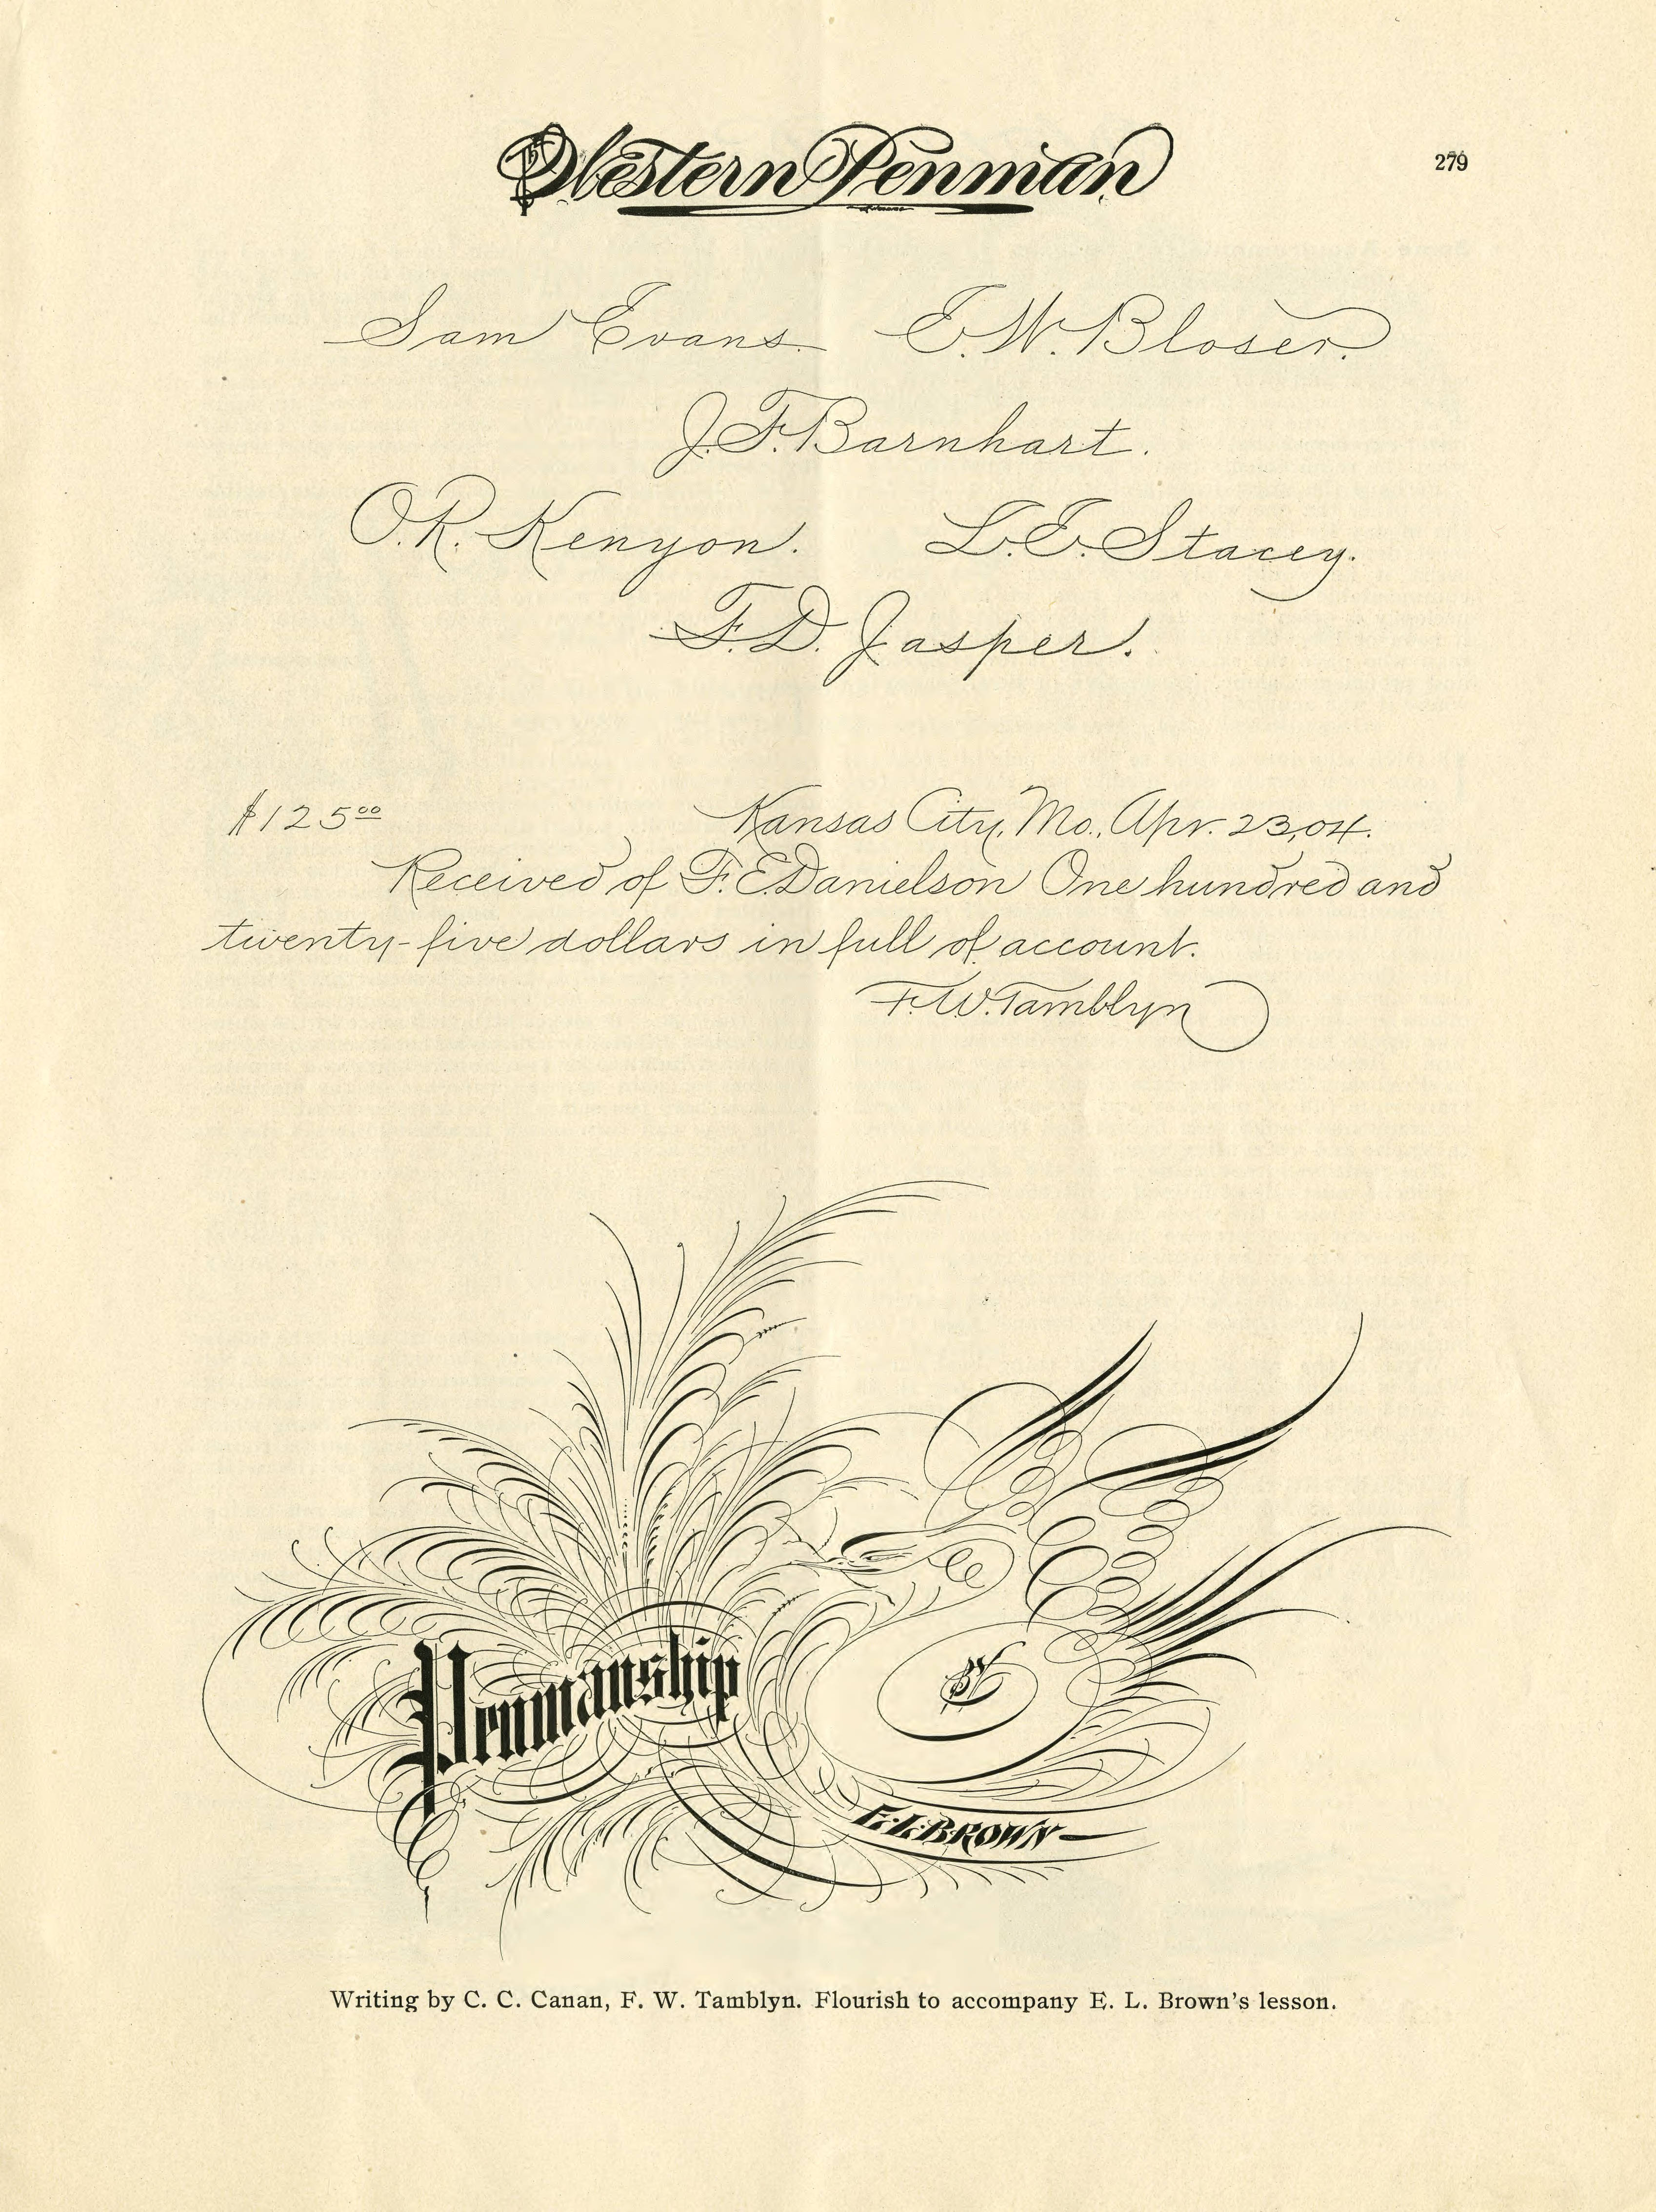 The Western Penman
279
Sam Evans. E. W. Bloser.
J. F. Barnhart.
O. R. Kenyon. L. E. Stacey.
F. D. Jasper.
$125⁰⁰ Kansas City, Mo., Apr. 23, 04.
Received of F. E. Danielson One hundred and
twenty-five dollars in full of account.
F. W. Tamblyn
Penmanship
By
E. L. BROWN—
Writing by C. C. Canan, F. W. Tamblyn. Flourish to accompany E. L. Brown's lesson.